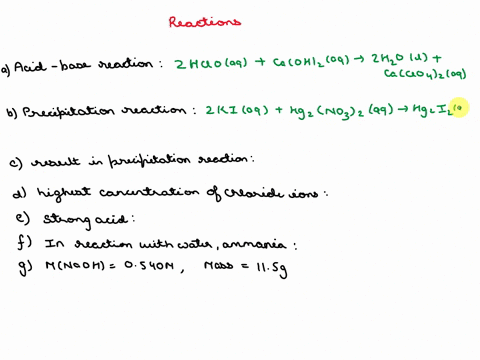 Reactions
a) Acid-base reaction: 2HClO(aq) + Ca(OH)2(aq) → 2H2O(l) +
Ca(ClO4)2(aq)
b) Precipitation reaction: 2KI(aq) + Hg2(NO3)2(aq) → Hg2I2(
c) result in precipitation reaction:
d) highest concentration of chloride ions:
e) strong acid:
f) In reaction with water, ammonia:
g) M(NaOH) = 0.540M, Mass = 11.5g